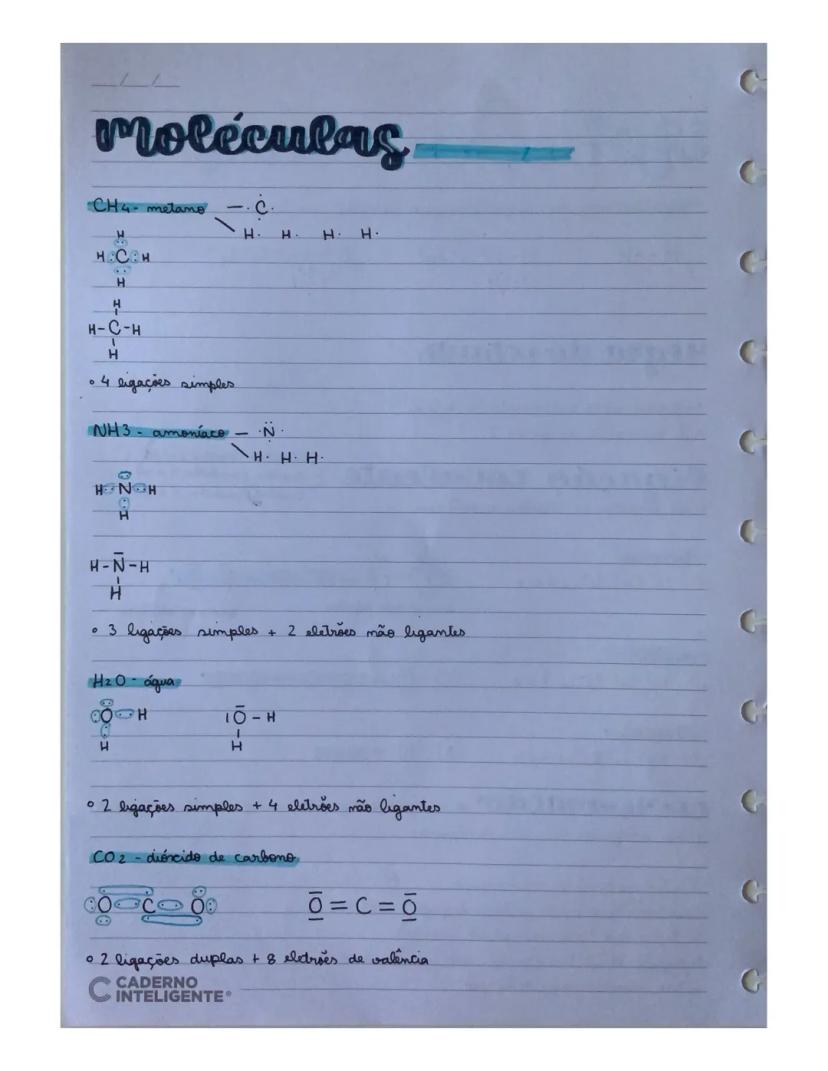 __/__/__
moléculas
CH4 - metano — ·Ċ·
H· H· H· H·
H
H:C:H
H
H
H-C-H
H
• 4 ligações simples
NH3 - amoníaco — ·N̈·
H· H· H·
H:N:H
H
H-N̅-H
H
• 3 ligações simples + 2 eletrões não ligantes
H2O - água
:O:H IO̅-H
H H
• 2 ligações simples + 4 eletrões não ligantes
CO2 - dióxido de carbono
:O::C::O: O̅=C=O̅
• 2 ligações duplas + 8 eletrões de valência
CADERNO
INTELIGENTE®